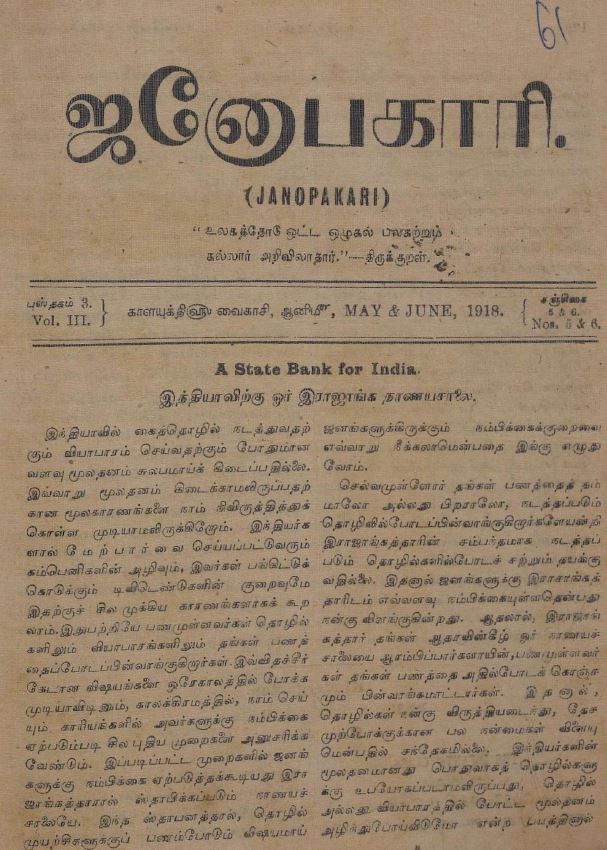 61
ஜனோபகாரி.
(JANOPAKARI)
“உலகத்தோடு ஒட்ட ஒழுகல் பலகற்றும்
கல்லார் அறிவிலாதார்.”—திருக்குறள்.
புஸ்தகம் 3.
Vol. III.
காளயுக்தி௵ வைகாசி, ஆனி௴, MAY & JUNE, 1918.
சஞ்சிகை
5 & 6.
Nos. 5 & 6.
A State Bank for India.
இந்தியாவிற்கு ஓர் இராஜாங்க நாணயசாலை.
இந்தியாவில் கைத்தொழில் நடத்துவதற்
கும் வியாபாரம் செய்வதற்கும் போதுமான
வளவு மூலதனம் சுலபமாய்க் கிடைப்பதில்லை.
இவ்வாறு மூலதனம் கிடைக்காமலிருப்பதற்
கான மூலகாரணங்களை நாம் நிவிருத்தித்துக்
கொள்ள முடியாமலிருக்கிறோம். இந்தியர்க
ளால் மேற்பார்வை செய்யப்பட்டுவரும்
கம்பெனிகளின் அழிவும், இவர்கள் பங்கிட்டுக்
கொடுக்கும் டிவிடெண்டுகளின் குறைவுமே
இதற்குச் சில முக்கிய காரணங்களாகக் கூற
லாம். இதுபற்றியே பணமுள்ளவர்கள் தொழில்
களிலும் வியாபாரங்களிலும் தங்கள் பணத்
தைப்போடப்பின்வாங்குகிறார்கள். இவ்விதச்சீர்
கேடான விஷயங்களை ஒரேகாலத்தில் போக்க
முடியாவிடினும், காலக்கிரமத்தில், நாம் செய்
யும் காரியங்களில் அவர்களுக்கு நம்பிக்கை
ஏற்படும்படி சில புதிய முறைகளை அனுசரிக்க
வேண்டும். இப்படிப்பட்ட முறைகளில் ஜனங்
களுக்கு நம்பிக்கை ஏற்படுத்தக்கூடியது இரா
ஜாங்கத்தாரால் ஸ்தாபிக்கப்படும் நாணயச்
சாலையே. இந்த ஸ்தாபனத்தால், தொழில்
முயற்சிகளுக்குப் பணம்போடும் விஷயமாய்
ஜனங்களுக்கிருக்கும் நம்பிக்கைக்குறைவை
எவ்வாறு நீக்கலாமென்பதை இங்கு எழுது
வோம்.
செல்வமுள்ளோர் தங்கள் பணத்தைத் தம்
மாலோ அல்லது பிறராலோ, நடத்தப்படும்
தொழிலில்போடப்பின்வாங்குகிறார்களேயன்றி
இராஜாங்கத்தாரின் சம்பந்தமாக நடத்தப்
படும் தொழில்களில்போடச் சற்றும் தயக்கு
வதில்லை. இதனால் ஜனங்களுக்கு இராசாங்கத்
தாரிடம் எவ்வளவு நம்பிக்கையுள்ளதென்பது
நன்கு விளங்குகின்றது. ஆதலால், இராஜாங்
கத்தார் தங்கள் ஆதரவின்கீழ் ஓர் நாணயச்
சாலையை ஆரம்பிப்பார்களாயின், பணமுள்ளவர்
கள் தங்கள் பணத்தை அதில்போடக் கொஞ்ச
மும் பின்வாங்கமாட்டார்கள். இதனால்,
தொழில்கள் நன்கு விருத்தியடைந்து, தேச
முற்போக்குக்கான பல நன்மைகள் விளையு
மென்பதில் சந்தேகமில்லை. இந்தியர்களின்
மூலதனமானது பொதுவாகத் தொழில்களு
க்கு உபயோகப்படாமலிருப்பது, தொழில்
அல்லது வியாபாரத்தில் போட்ட மூலதனம்
அழிந்துபோய்விடுமோ என்ற பயத்தினால்